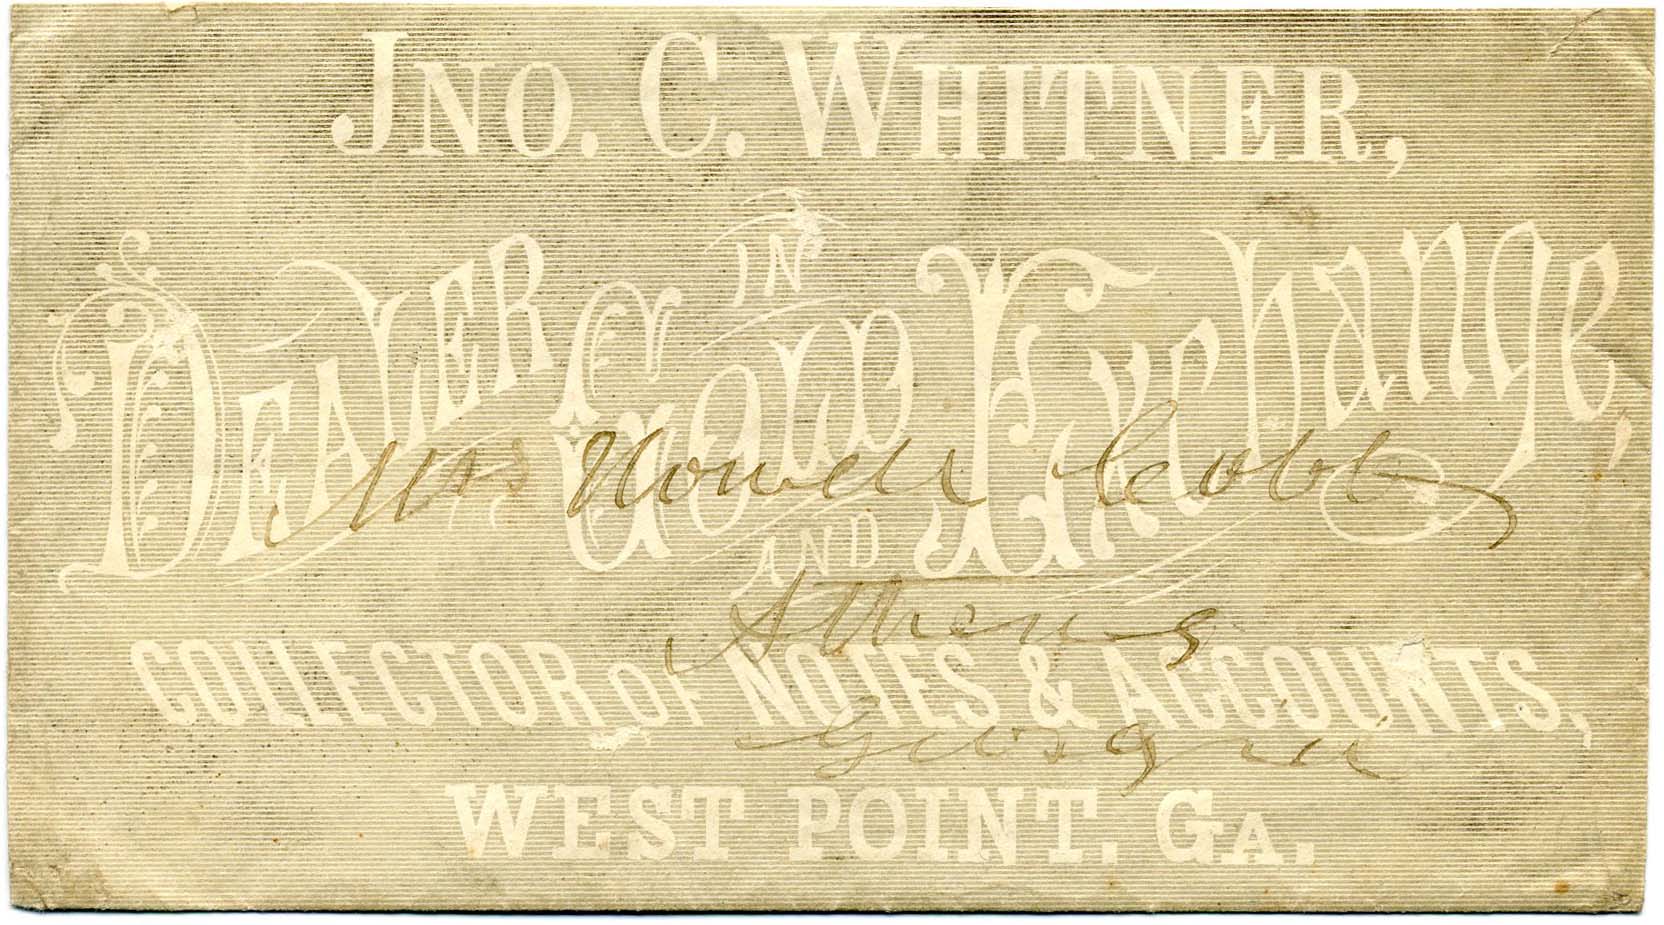 JNO. C. WHITNER,
DEALER IN GOLD AND Exchange,
Mrs Howell Cobb
Athens
COLLECTOR OF NOTES & ACCOUNTS,
Georgia
WEST POINT. GA.